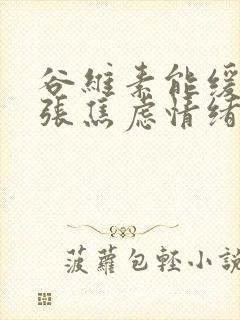 谷維素能緩
張焦慮情緒
菠蘿包輕小說